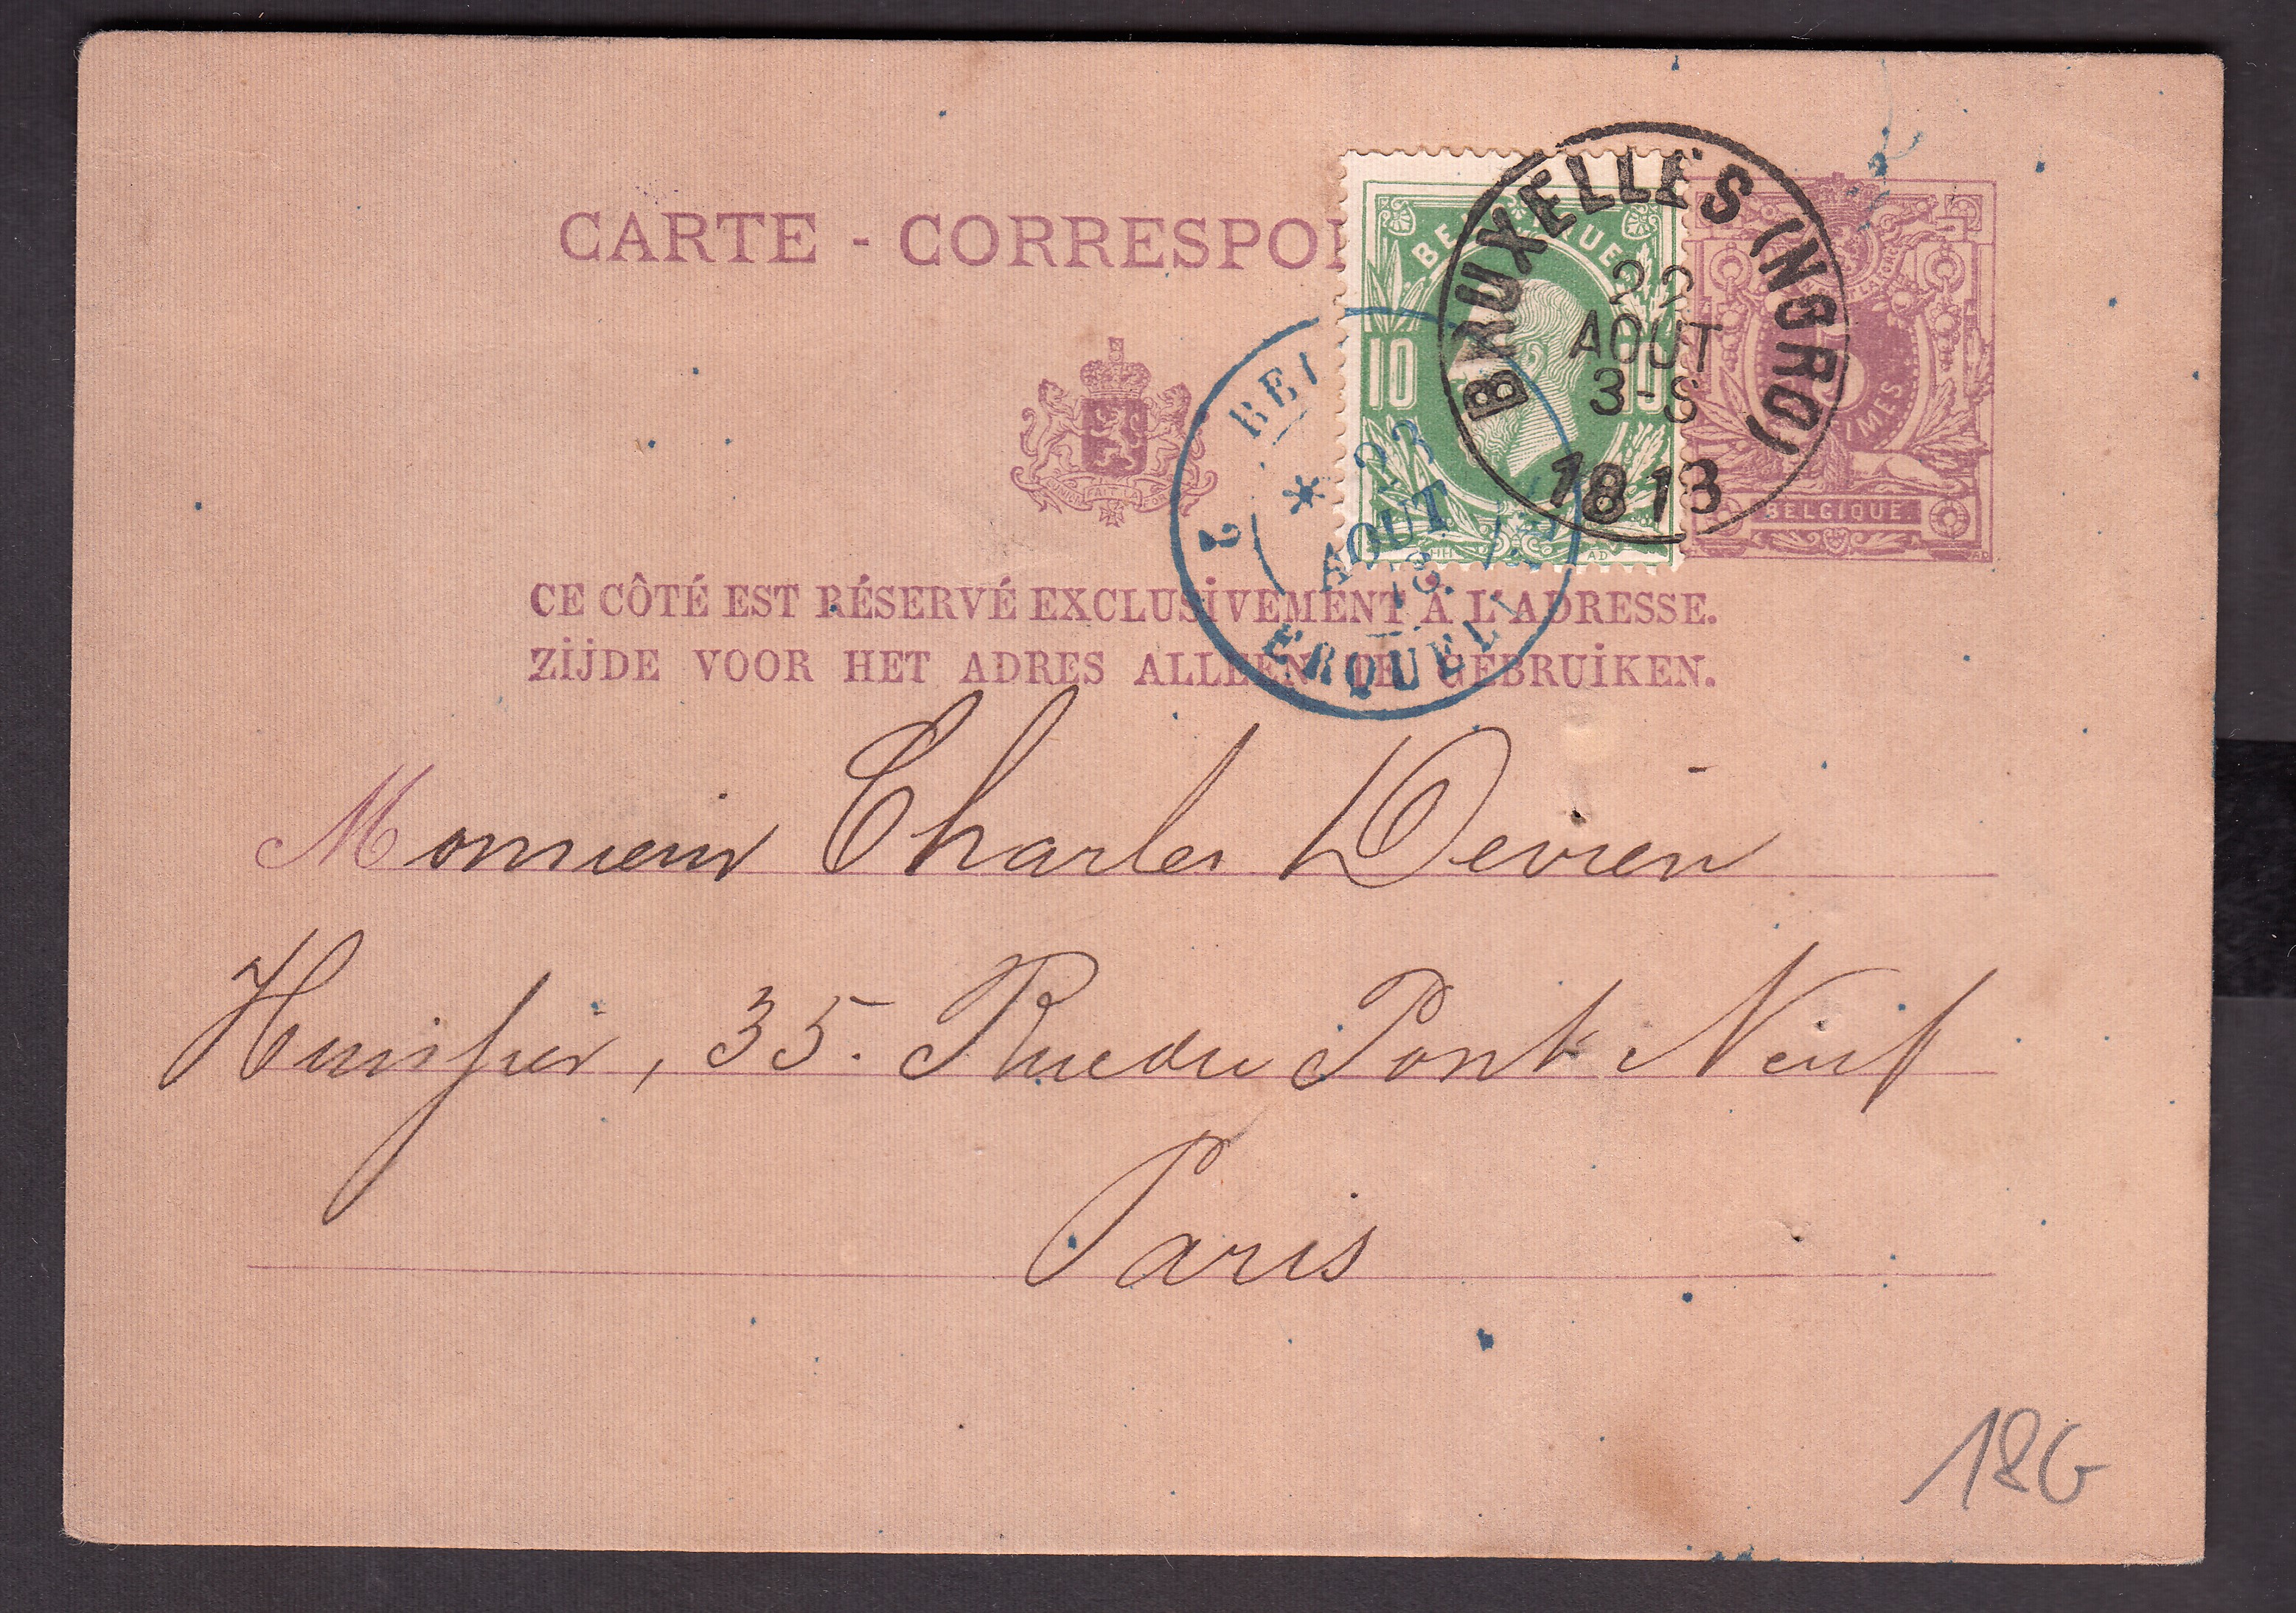 CARTE - CORRESPO
BE QUE
10 10
BRUXELLES (NORD)
22
AOUT
3-S
1873
IMES
BELGIQUE
BEL
2
23
AOUT
73
ERQUEL
FAIT LA
CE CÔTÉ EST RÉSERVÉ EXCLUSIVEMENT A L'ADRESSE.
ZIJDE VOOR HET ADRES ALLEEN TE GEBRUIKEN.
Monsieur Charles Devien
Huissier, 35. Rue du Pont Neuf
Paris
18G